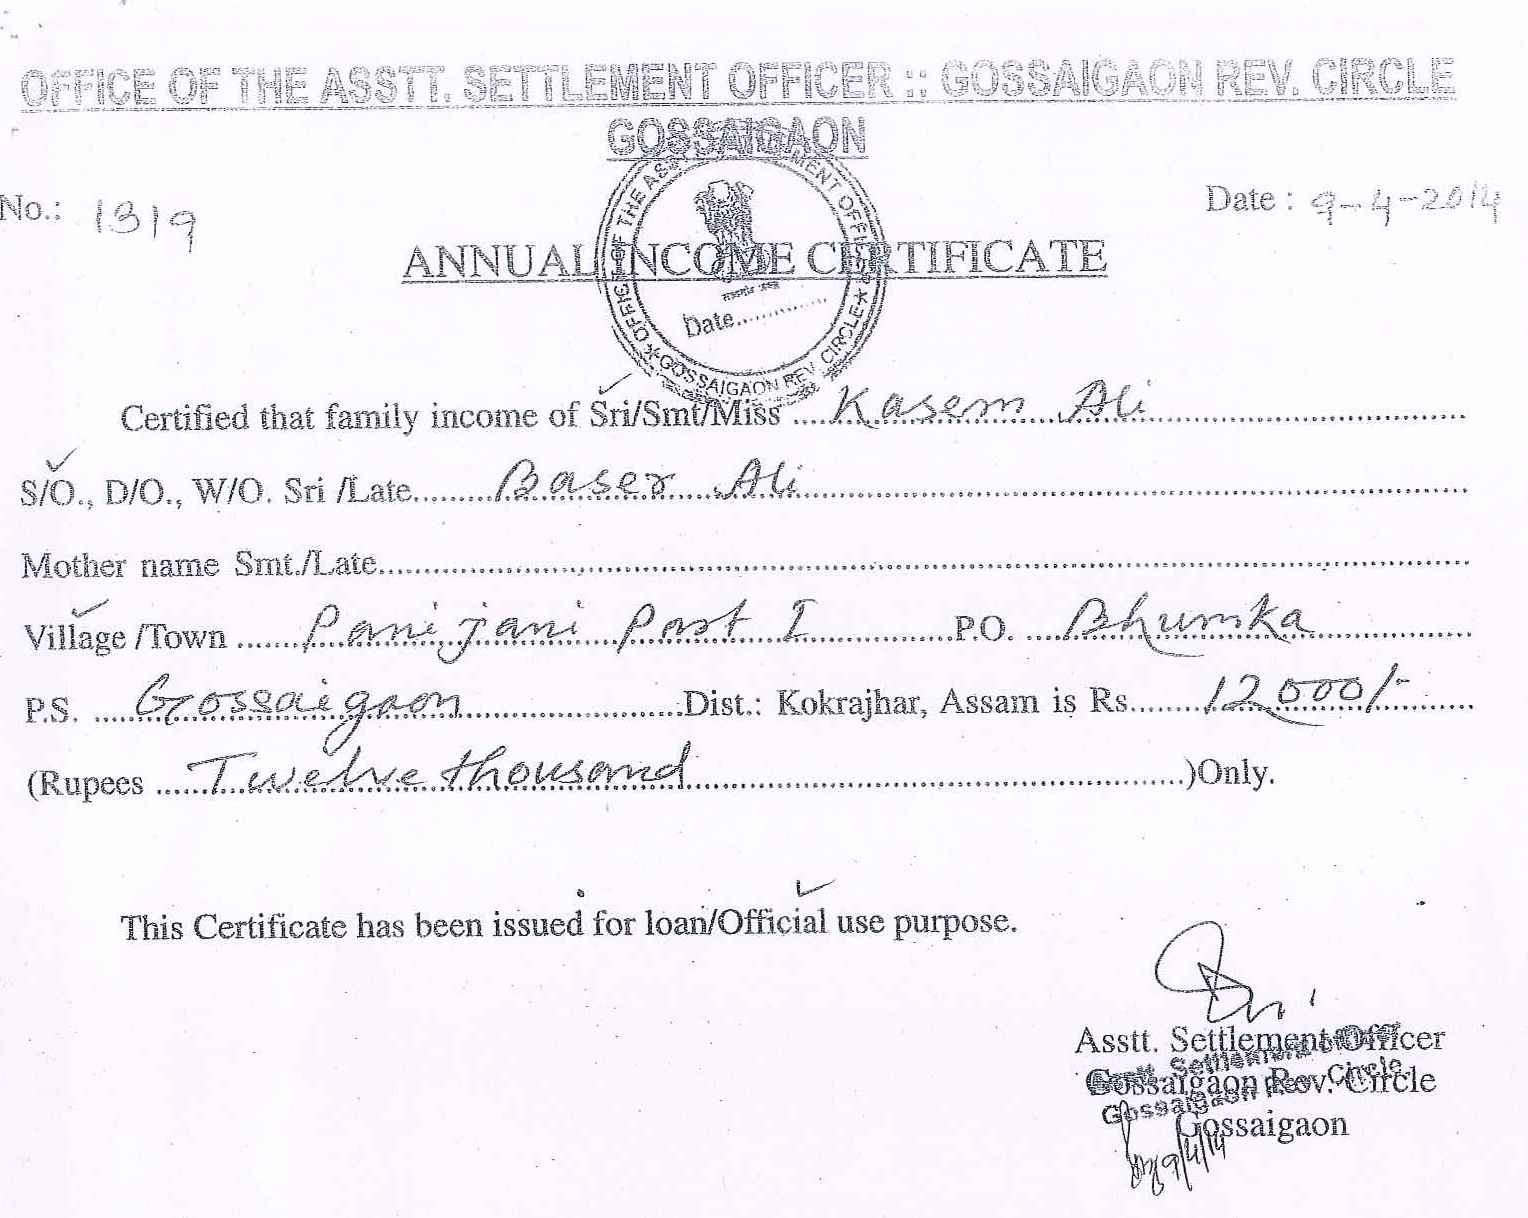 OFFICE OF THE ASSTT. SETTLEMENT OFFICER :: GOSSAIGAON REV. CIRCLE
GOSSAIGAON
No.: 1319
Date : 9-4-2014
ANNUAL INCOME CERTIFICATE
OFFICE OF THE ASSTT. SETTLEMENT OFFICER ★ GOSSAIGAON REV. CIRCLE ★
सत्यमेव जयते
Date..............
Certified that family income of Sri/Smt/Miss ....Kasem Ali....
S/O., D/O., W/O. Sri /Late.........Baser Ali....
Mother name Smt./Late....
Village /Town .......Panijani Part I...............P.O. ....Bhumka....
P.S. .....Gossaigaon......................Dist.: Kokrajhar, Assam is Rs........12000/-....
(Rupees ......Twelve thousand....)Only.
This Certificate has been issued for loan/Official use purpose.
Asstt. Settlement Officer
Gossaigaon Rev. Circle
Gossaigaon
Asstt. Settlement Officer
Gossaigaon Rev. Circle
9/4/14